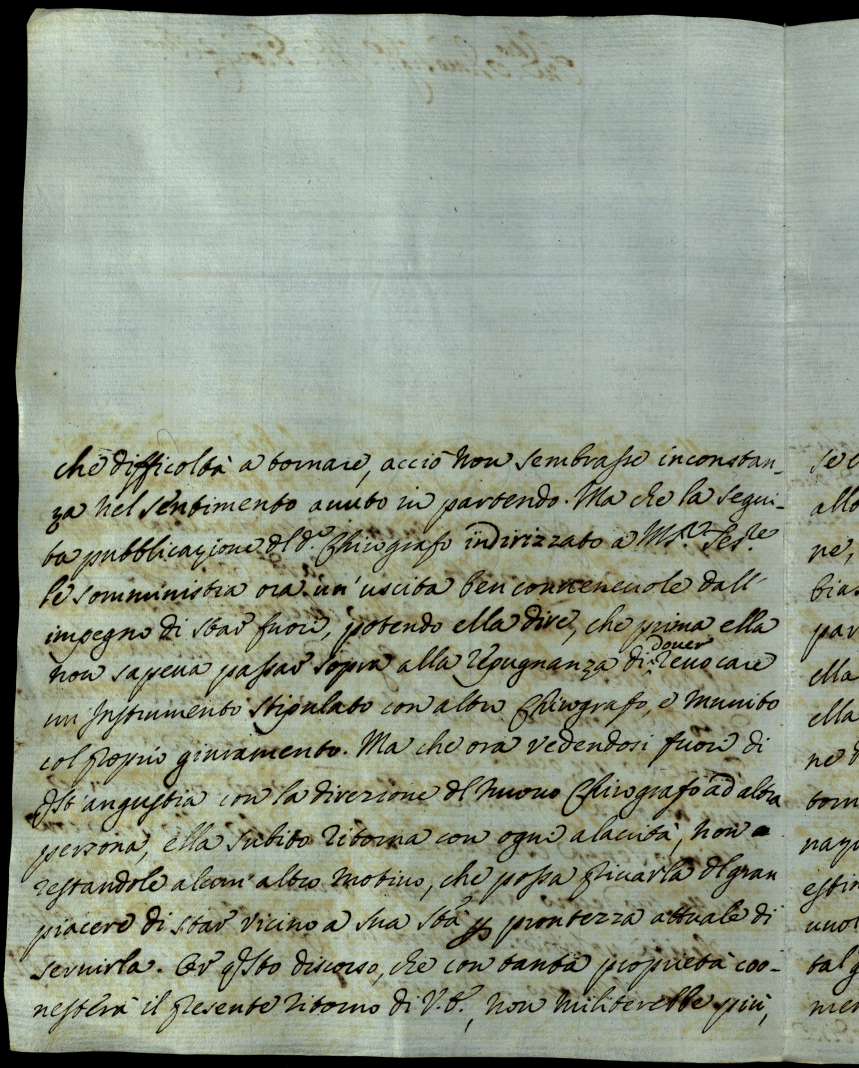 che difficoltà a tornare, acciò non sembrasse inconstan-
za nel sentimento avuto in partendo. Ma che la segui-
ta pubblicazione del d.º Chirografo indirizzato a Ms.r Tes.re
le somministra ora un'uscita ben convenevole dall'
impegno di star fuori, potendo ella dire, che prima ella
non sapeva passar sopra alla repugnanza di dover revocare
un Instrumento stipulato con altro Chirografo, e munito
col proprio giuramento. Ma che ora vedendosi fuori di
qsta angustia con la direzione del nuovo Chirografo ad altra
persona, ella subito ritorna con ogni alacrità, non
restandole alcun'altro motivo, che possa privarla del gran
piacere di star vicino a Sua Stà prontezza attuale di
servirla. Or qsto discorso, che con tanta proprietà coo-
nesterà il presente ritorno di V.E., non militerebbe più,
se
allo
ne,
par
ella
ella
ne d
torn
estin
tal g
men